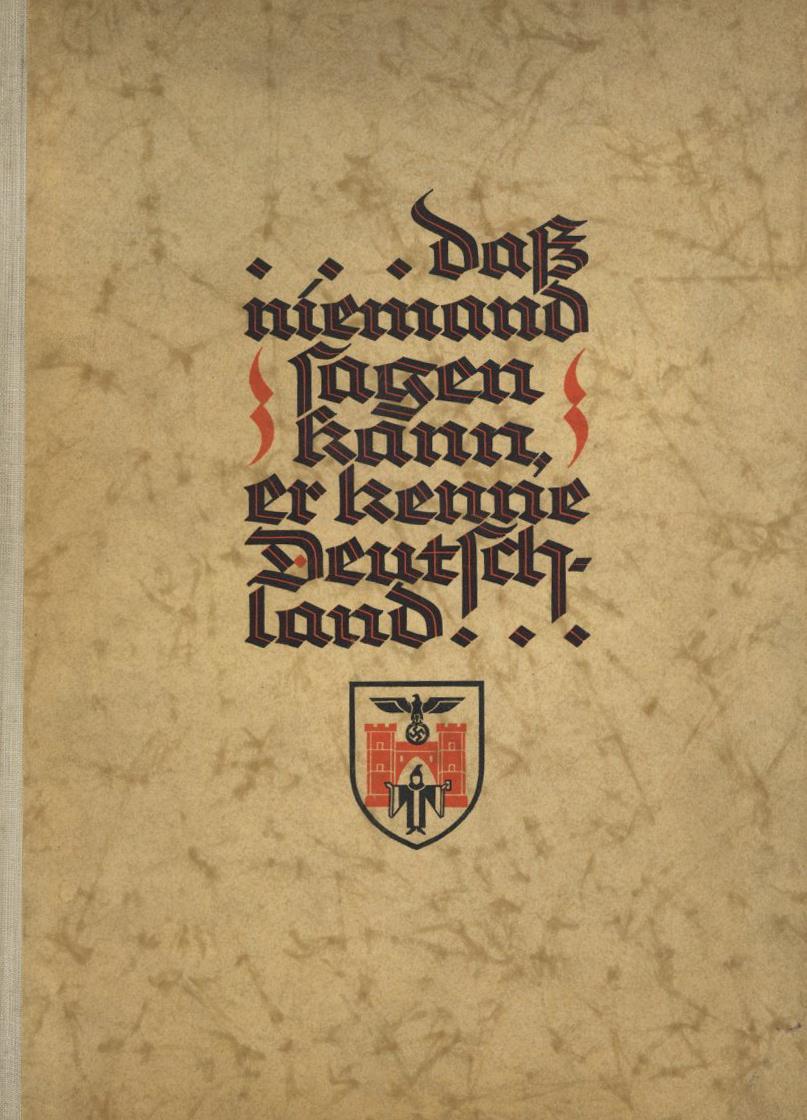 . . . daß
niemand
sagen
kann,
er kenne
Deutsch-
land. . .